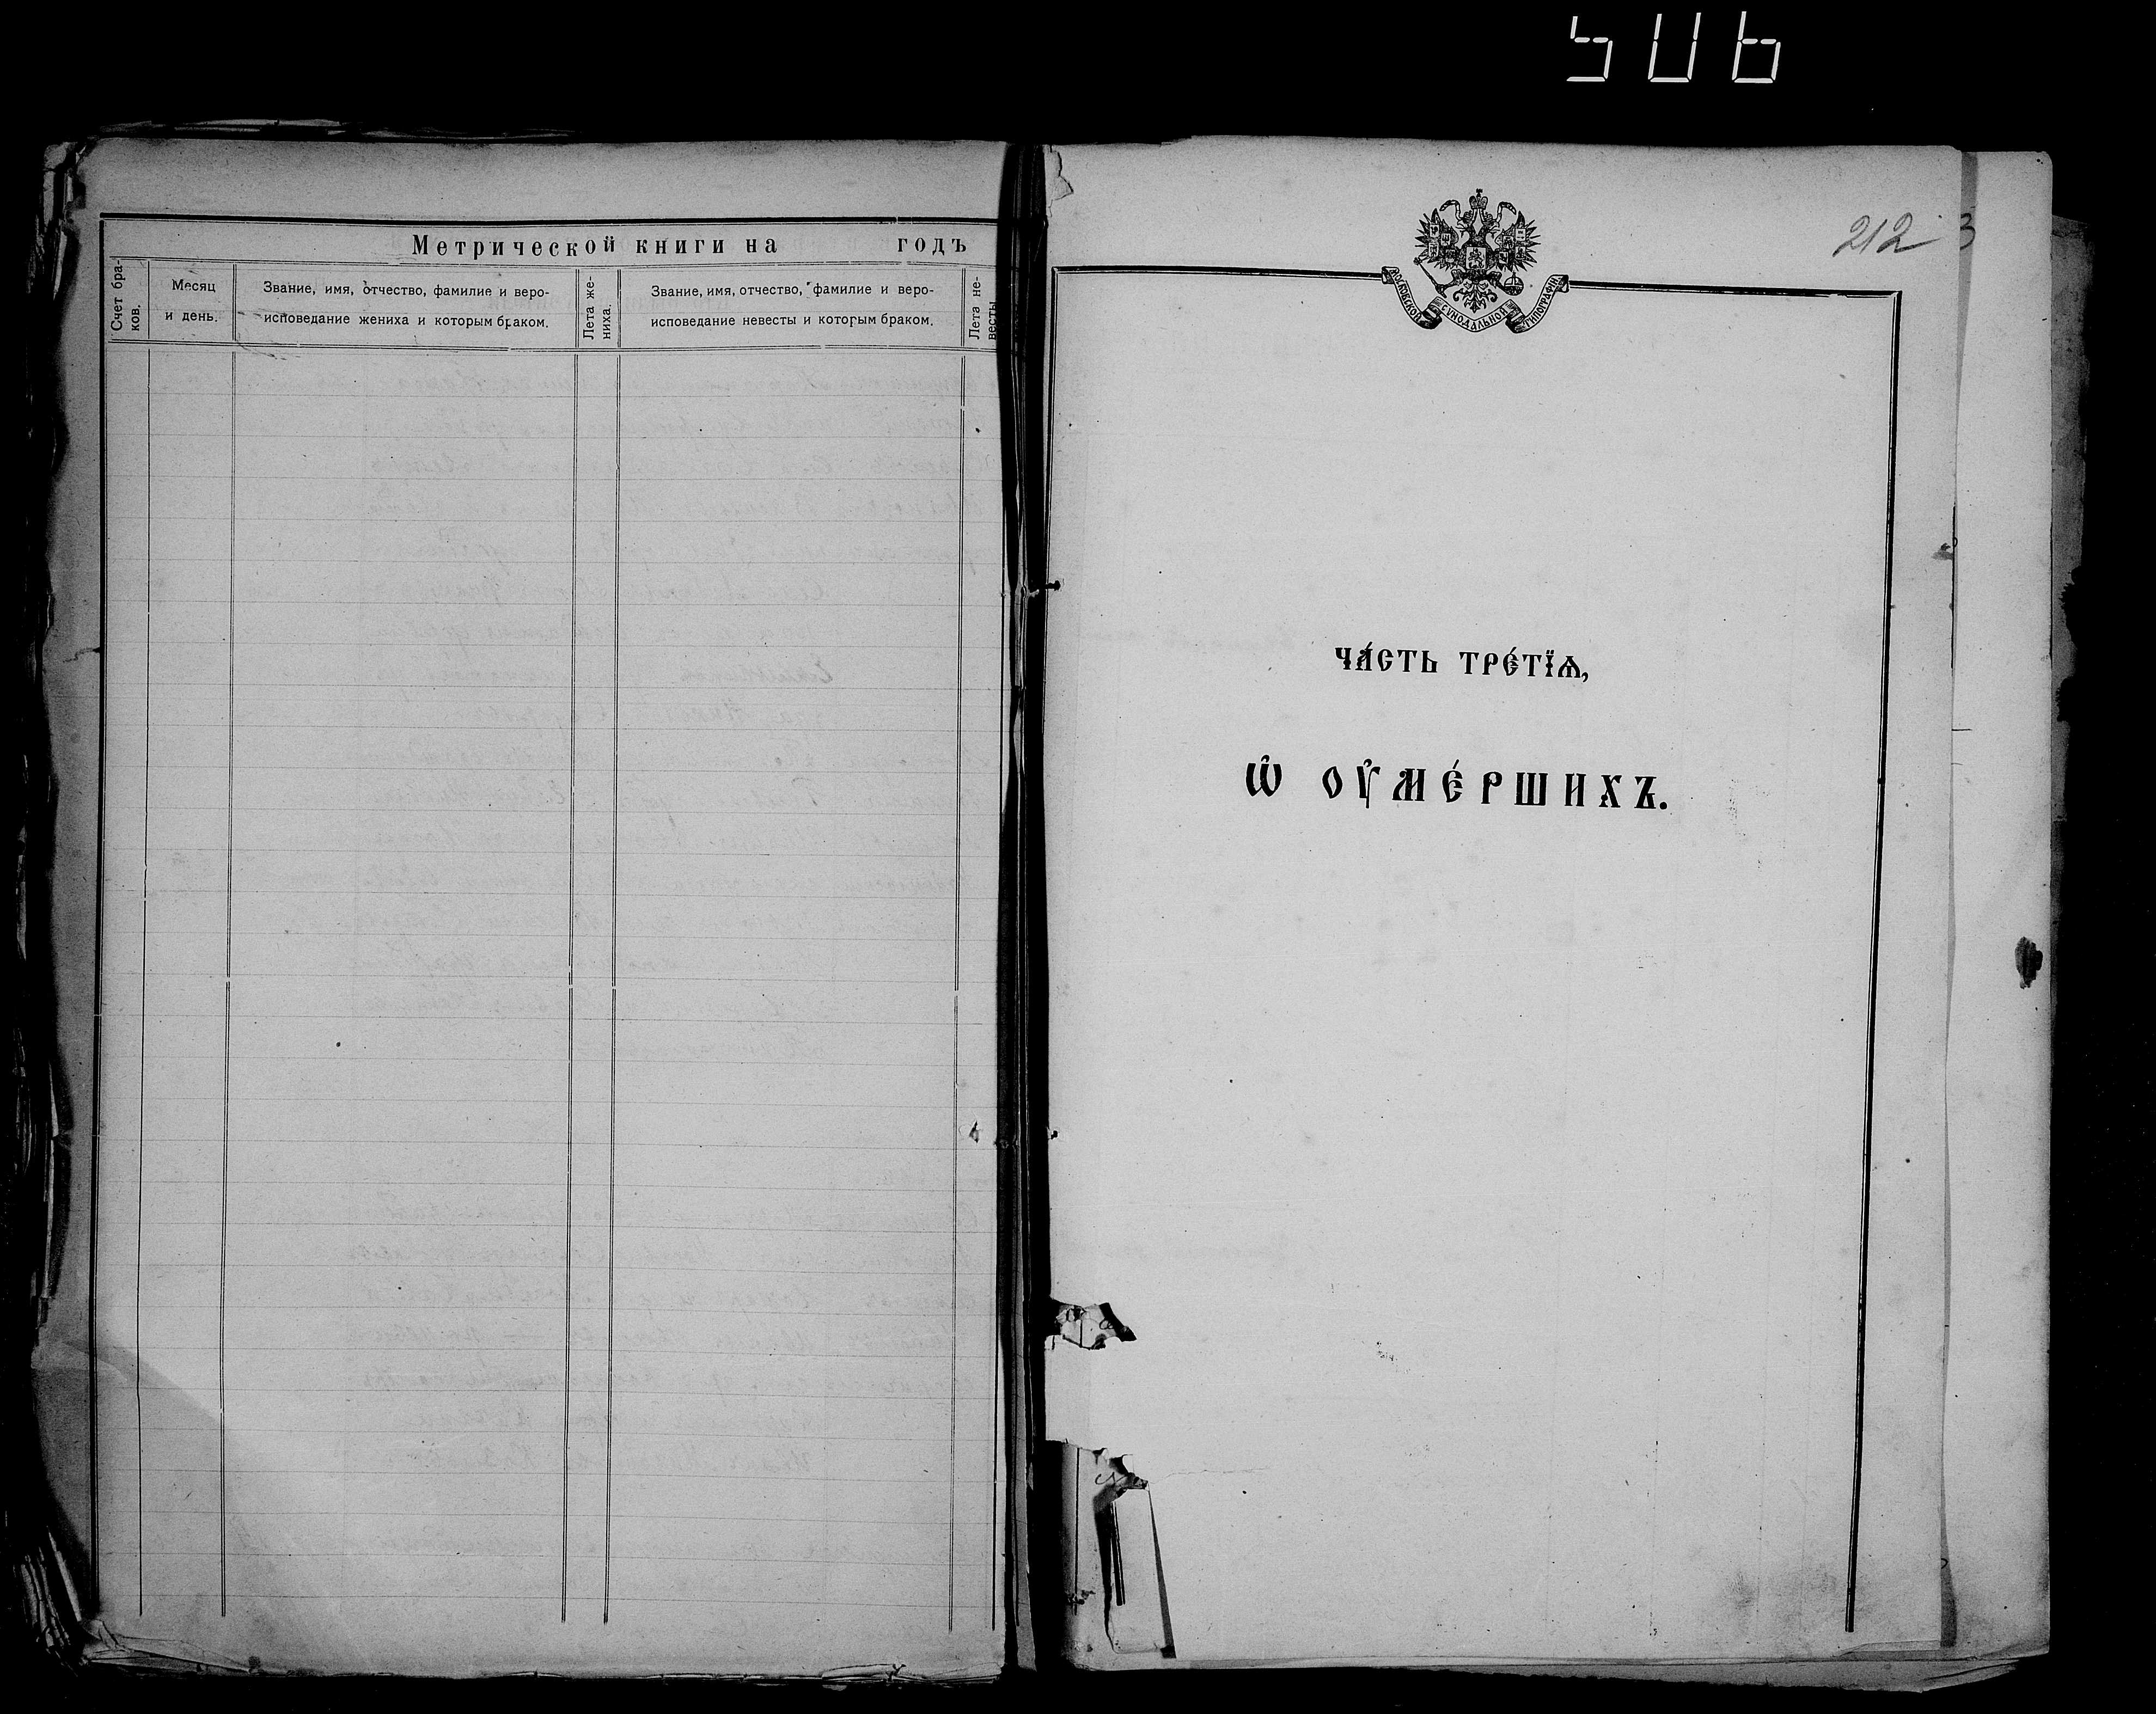 506
Метрической книги на годъ
Счет бра-
ков.
Месяц
и день.
Звание, имя, отчество, фамилие и веро-
исповедание жениха и которым браком.
Лета же-
ниха.
Звание, имя, отчество, фамилие и веро-
исповедание невесты и которым браком.
Лета не-
весты
212
3
МОСКОВСКОЙ СѴНОДАЛЬНОЙ ТИПОГРАФІИ
ЧА́СТЬ ТРЕ́ТЇѦ,
Ѽ ОУ҆МЕ́РШИХЪ.